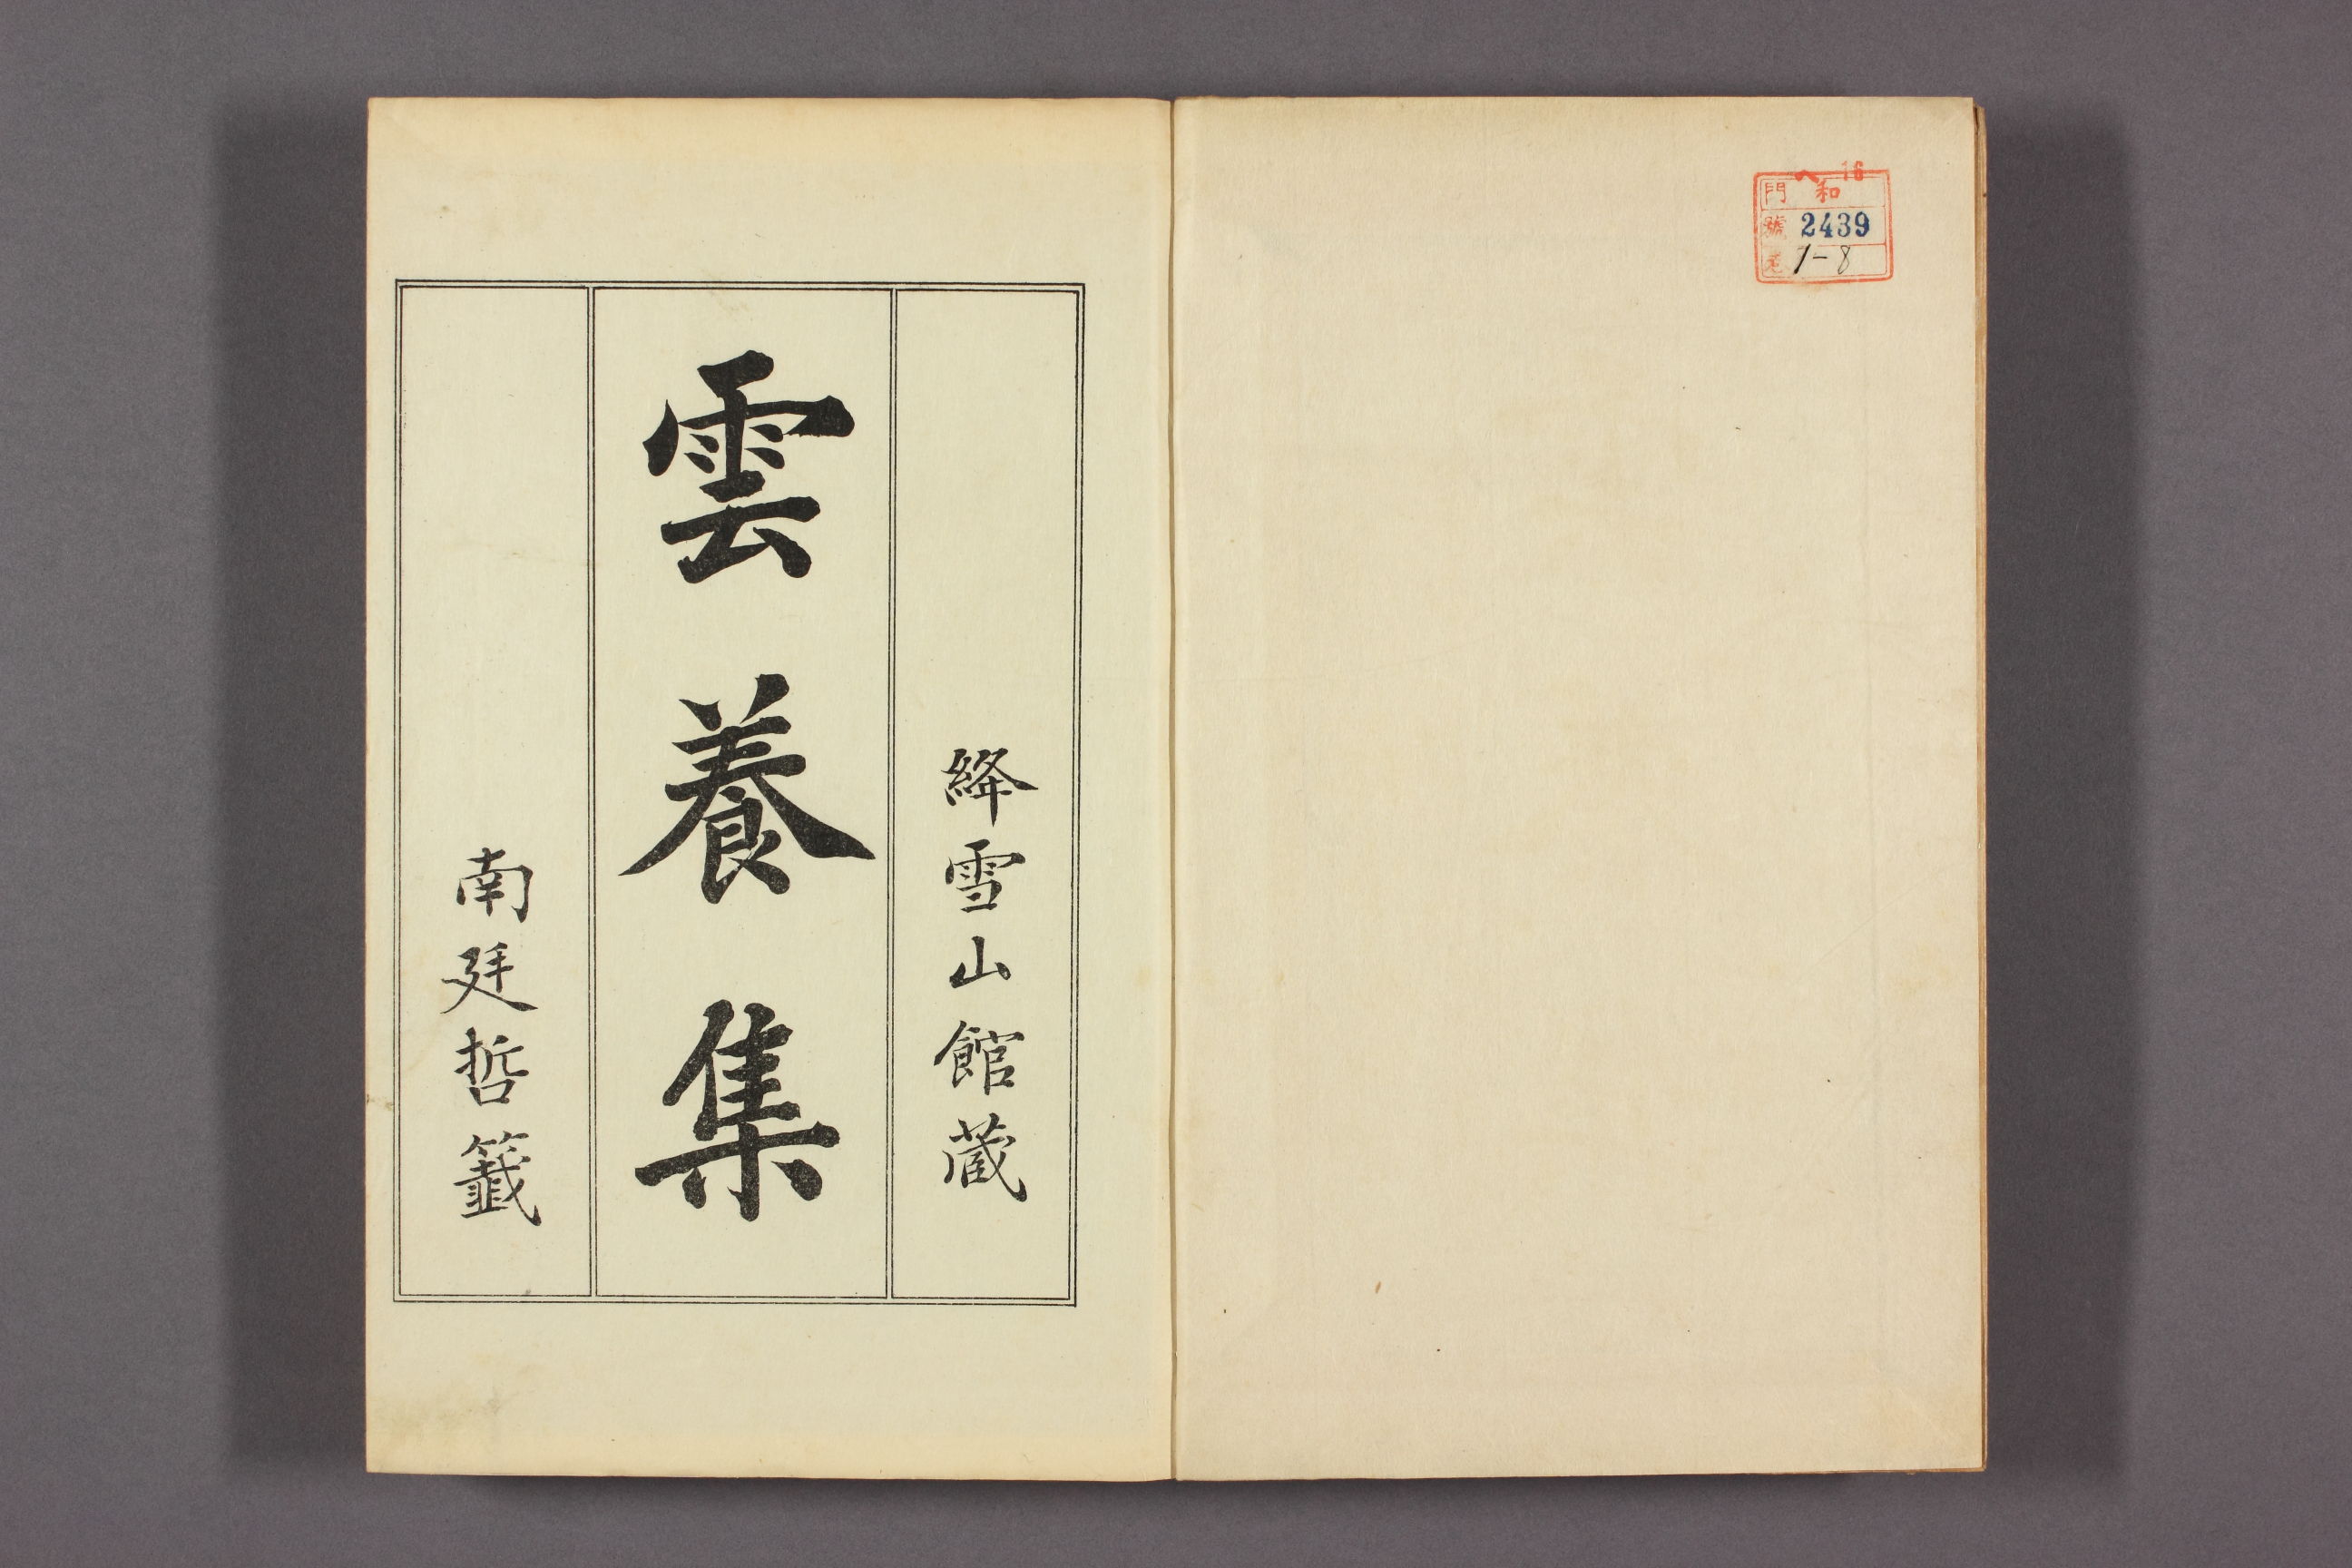 ヘ16
門 和
號 2439
卷 1-8
絳雪山館藏
雲養集
南廷哲籤